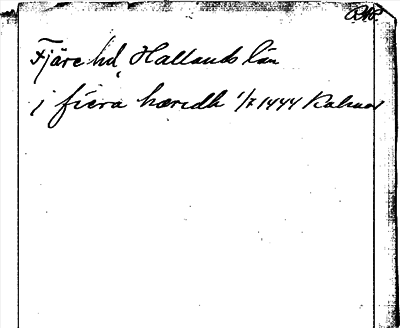 Fjäre hd, Hallands län
j fiera hæredh 1/7 1444 Kalmar